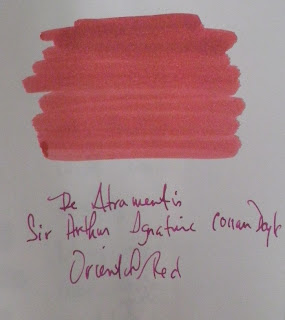 De Atramentis
Sir Arthur Ignatius Conan Doyle
Oriental Red